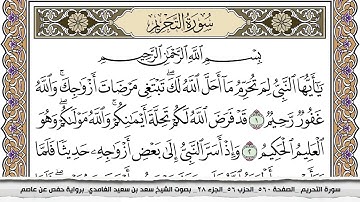 سورة التحريم
بِسْمِ اللَّهِ الرَّحْمَٰنِ الرَّحِيمِ
يَا أَيُّهَا النَّبِيُّ لِمَ تُحَرِّمُ مَا أَحَلَّ اللَّهُ لَكَ ۖ تَبْتَغِي مَرْضَاتَ أَزْوَاجِكَ ۚ وَاللَّهُ
غَفُورٌ رَّحِيمٌ ١ قَدْ فَرَضَ اللَّهُ لَكُمْ تَحِلَّةَ أَيْمَانِكُمْ ۚ وَاللَّهُ مَوْلَاكُمْ ۖ وَهُوَ
الْعَلِيمُ الْحَكِيمُ ٢ وَإِذْ أَسَرَّ النَّبِيُّ إِلَىٰ بَعْضِ أَزْوَاجِهِ حَدِيثًا فَلَمَّا
سورة التحريم _الصفحة ٥٦٠_الحزب ٥٦_الجزء ٢٨_ بصوت الشيخ سعد بن سعيد الغامدي برواية حفص عن عاصم